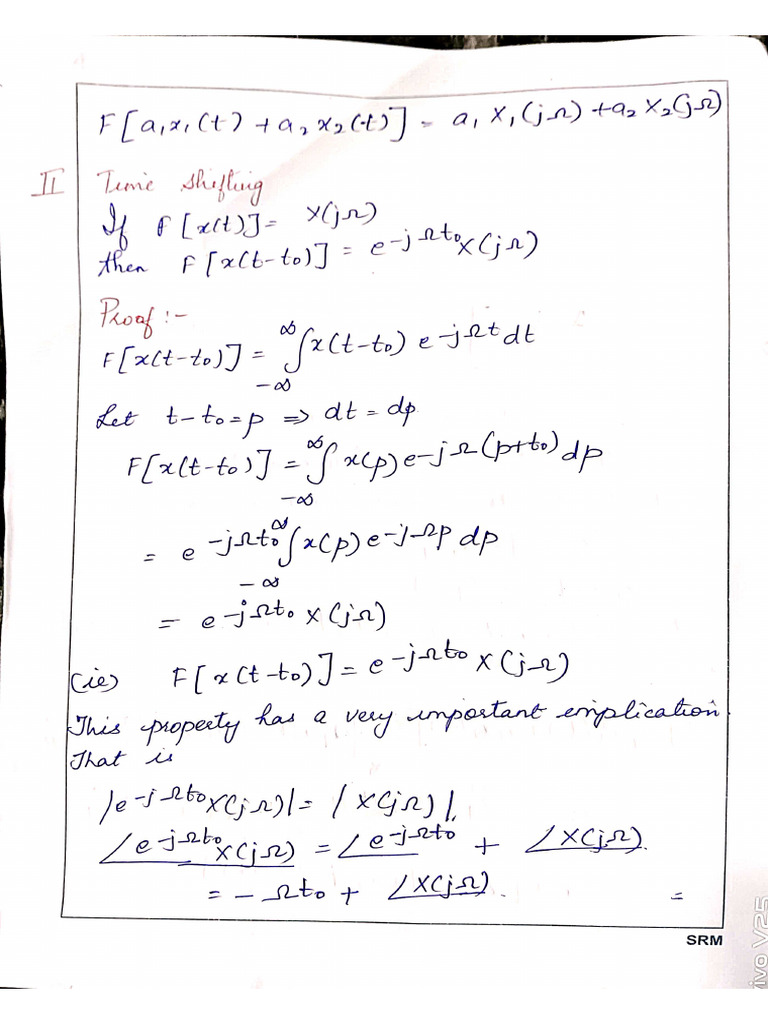 F[a₁x₁(t) + a₂x₂(t)] = a₁X₁(jΩ) + a₂X₂(jΩ)
II Time shifting
If F[x(t)] = X(jΩ)
then F[x(t-t₀)] = e^{-jΩt₀} X(jΩ)
Proof :-
F[x(t-t₀)] = ∫_{-∞}^{∞} x(t-t₀) e^{-jΩt} dt
Let t-t₀=p ⇒ dt = dp
F[x(t-t₀)] = ∫_{-∞}^{∞} x(p) e^{-jΩ(p+t₀)} dp
= e^{-jΩt₀} ∫_{-∞}^{∞} x(p) e^{-jΩp} dp
= e^{-jΩt₀} X(jΩ)
(ie) F[x(t-t₀)] = e^{-jΩt₀} X(jΩ)
This property has a very important implication
That is
|e^{-jΩt₀} X(jΩ)| = |X(jΩ)|.
∠e^{-jΩt₀} X(jΩ) = ∠e^{-jΩt₀} + ∠X(jΩ).
= -Ωt₀ + ∠X(jΩ). =
SRM
vivo V25